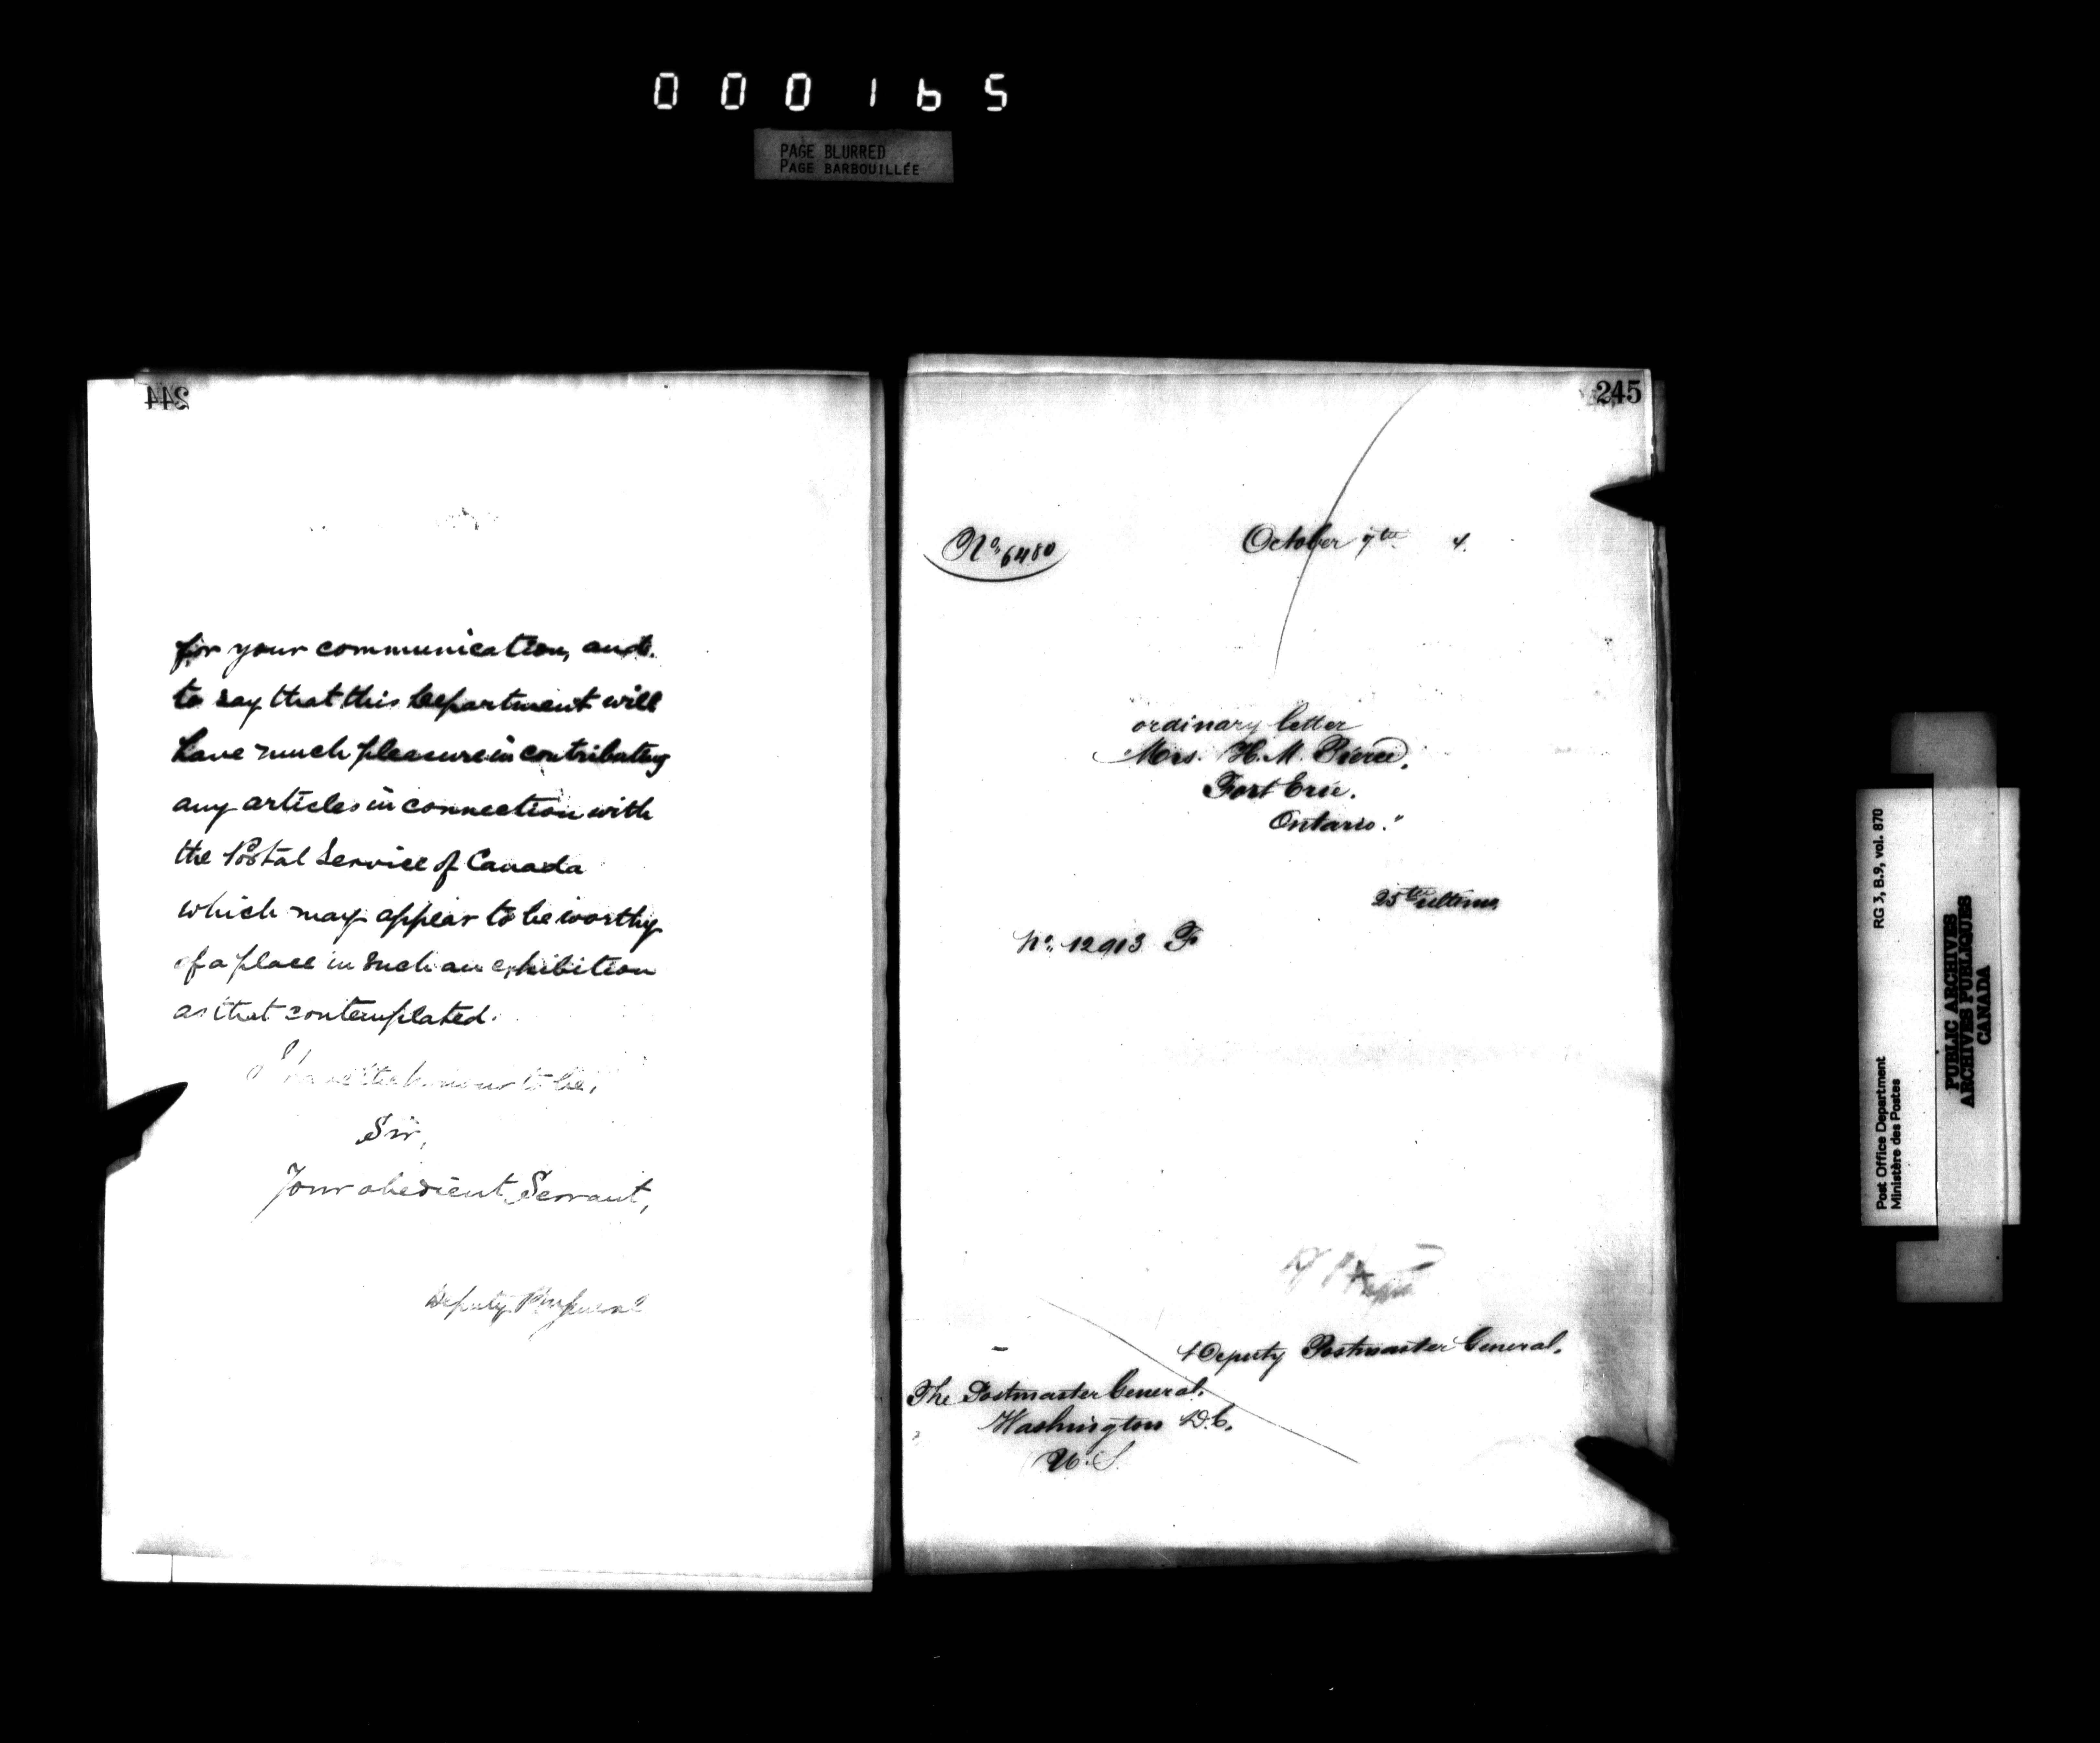 000165
PAGE BLURRED
PAGE BARBOUILLÉE
244
for your communication, and
to say that this Department will
have much pleasure in contributing
any articles in connection with
the Postal Service of Canada
which may appear to be worthy
of a place in such an exhibition
as that contemplated.
I have the honour to be,
Sir,
Your obedient Servant,
Deputy
245
No. 6480
October 7th 4.
ordinary letter
Mrs. H. M. Pierce,
Fort Erie.
Ontario."
25th ultimo
No. 12913 F
Deputy Postmaster General.
The Postmaster General,
Washington D.C.
U.S.
Post Office Department
Ministère des Postes
RG 3, B.9, vol. 870
PUBLIC ARCHIVES
ARCHIVES PUBLIQUES
CANADA